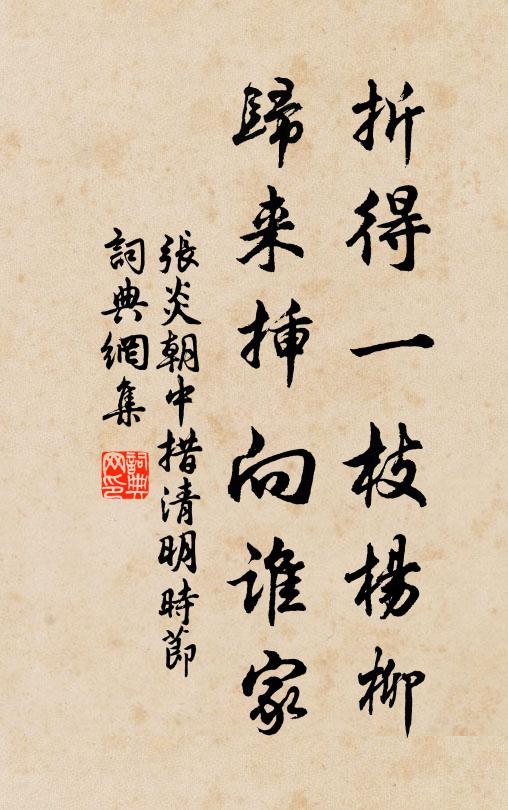 折得一枝楊柳
歸来挿向誰家
張炎朝中措清明時節
詞典網集
詞典网印